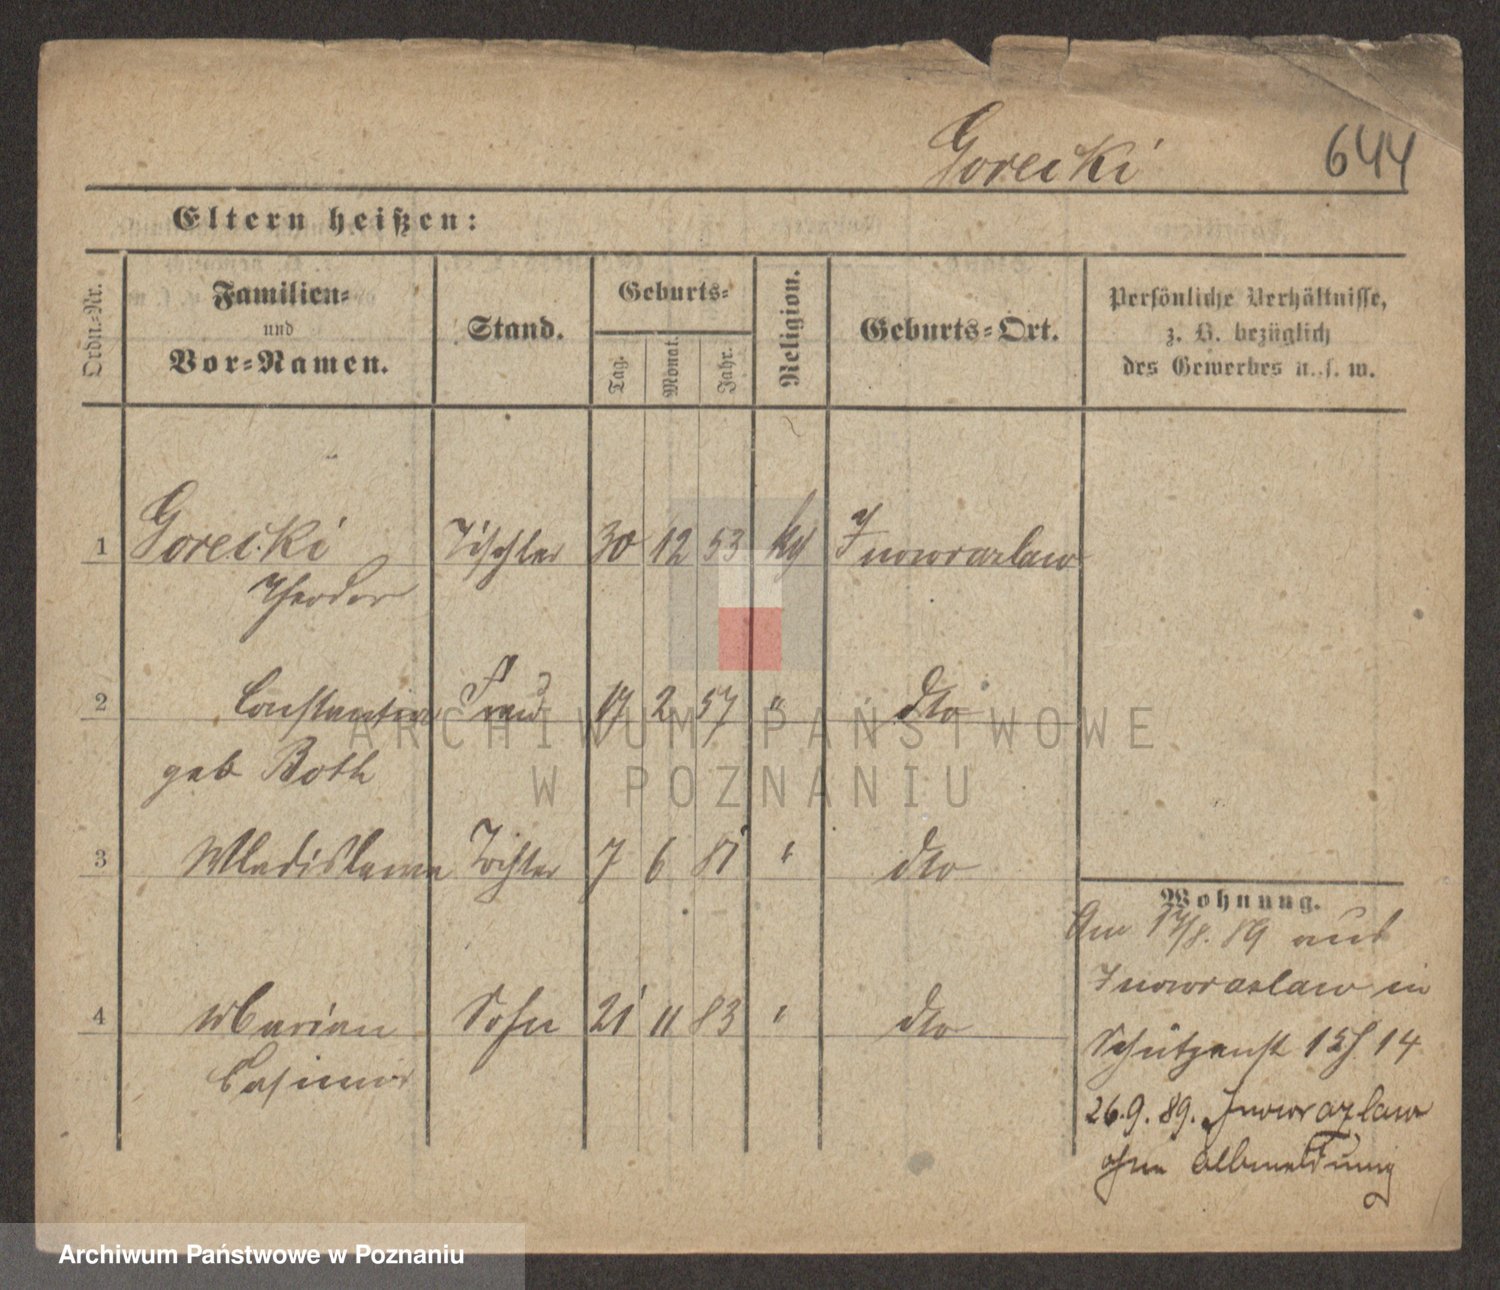 Gorecki 644
Eltern heißen:
Ordn.-Nr. Familien- und Vor-Namen. Stand. Geburts- Tag. Monat. Jahr. Religion. Geburts-Ort. Persönliche Verhältnisse, z. B. bezüglich des Gewerbes u. s. w.
1 Gorecki Tischler 30 12 53 kth Inowrazlaw
Theodor
2 Constantia Frau 17 2 57 " dto
geb Roth
3 Wladislawa Tochter 7 6 81 " dto
Wohnung.
Am 17/8. 89 aus
Inowrazlaw in
4 Marian Sohn 21 11 83 " dto
Schützenst 14
Casimir
26.9.89. Inowrazlaw
ohne Abmeldung
ARCHIWUM PAŃSTWOWE
W POZNANIU
Archiwum Państwowe w Poznaniu